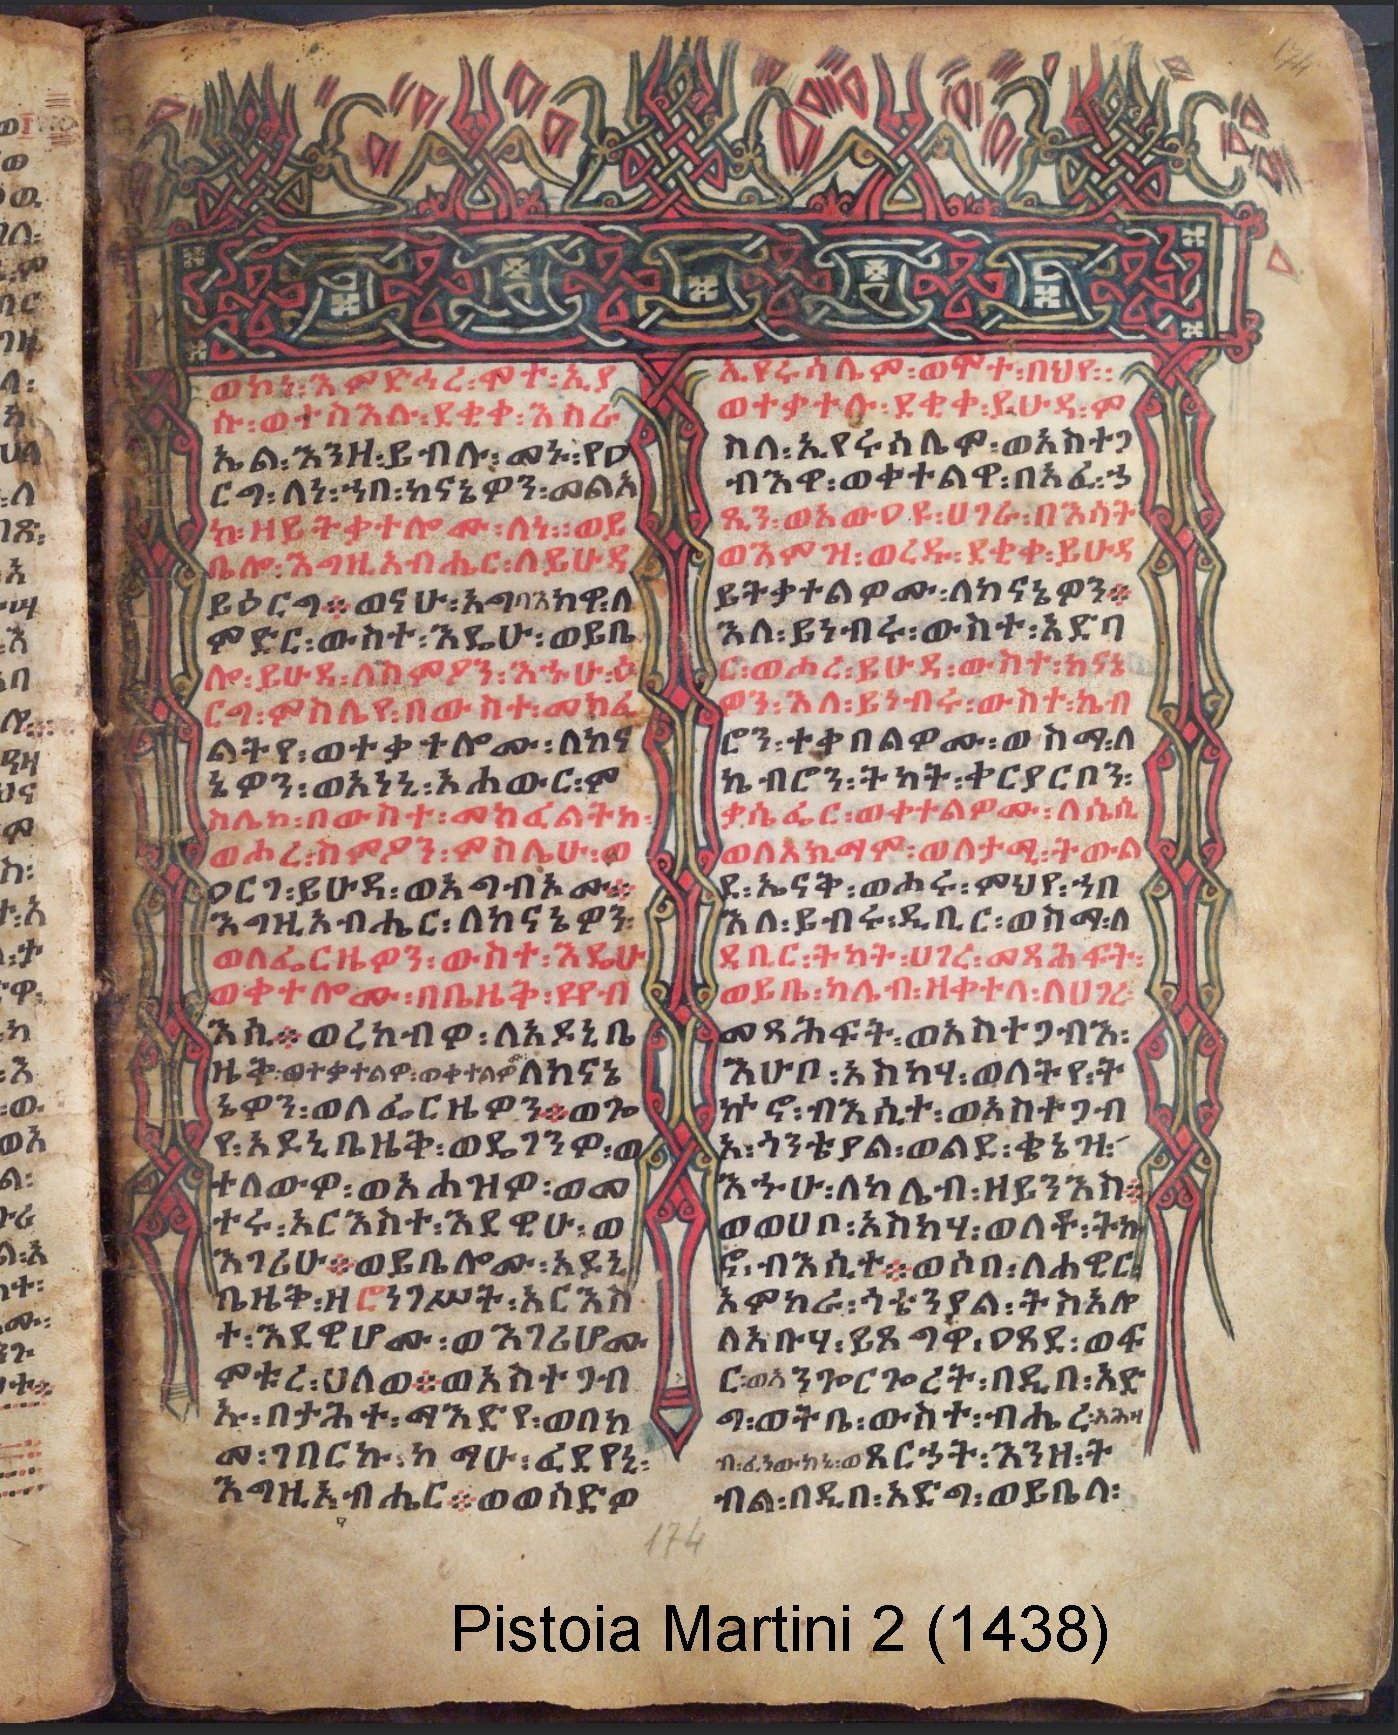 ወኮነ፡እምድኅረ፡ሞተ፡ኢያ
ሱ፡ወተስእሉ፡ደቂቀ፡እስራ
ኤል፡እንዘ፡ይብሉ፡መኑ፡የዐ
ርግ፡ለነ፡ኀበ፡ከናኔዎን፡መልአ
ከ፡ዘይትቃተሎሙ፡ለነ፡፡ወይ
ቤሎ፡እግዚአብሔር፡ለይሁዳ
ይዕርግ፨ወናሁ፡አግባእክዋ፡ለ
ምድር፡ውስተ፡እዴሁ፡ወይቤ
ሎ፡ይሁዳ፡ለስምዖን፡እኁሁ፡ዕ
ርግ፡ምስሌየ፡በውስተ፡መክፈ
ልትየ፡ወተቃተሎሙ፡ለከና
ኔዎን፡ወአነኒ፡አሐውር፡ም
ስሌከ፡በውስተ፡መክፈልትከ፡
ወሖረ፡ስምዖን፡ምስሌሁ፡ወ
ዐርገ፡ይሁዳ፡ወአግብኦሙ፨
እግዚአብሔር፡ለከናኔዎን፡
ወለፌርዜዎን፡ውስተ፡እዴሁ
ወቀተሎሙ፡በቤዜቅ፡፼ብ
እሲ፨ወረከብዎ፡ለአዶኒቤ
ዜቅ፡ወተቃተልዎ፡ወቀተልዎ ለከናኔ
ኔዎን፡ወለፌርዜዎን፨ወጐ
የ፡አዶኒቤዜቅ፡ወዴገንዎ፡ወ
ተለውዎ፡ወአሐዝዎ፡ወመ
ተሩ፡አርእስተ፡እደዊሁ፡ወ
እገሪሁ፨ወይቤሎሙ፡አዶኒ
ቤዜቅ፡ዘ ነገሥት፡አርእስ
ተ፡እደዊሆሙ፡ወእገሪሆሙ
ምቱረ፡ሀለወ፨ወአስተጋብ
ኡ፡በታሕተ፡ማእድየ፡ወበከ
መ፡ገበርኩ፡ከማሁ፡ፈደየኒ፡
እግዚአብሔር፨ወወሰድዎ
ኢየሩሳሌም፡ወሞተ፡በህየ፡፡
ወተቃተሉ፡ደቂቀ፡ይሁዳ፡ም
ስለ፡ኢየሩሳሌም፡ወአስተጋ
ብእዋ፡ወቀተልዋ፡በአፈ፡ኀ
ጺን፡ወአውዐዩ፡ሀገራ፡በእሳት
ወእምዝ፡ወረዱ፡ደቂቀ፡ይሁዳ
ይትቃተልዎሙ፡ለከናኔዎን፨
እለ፡ይነብሩ፡ውስተ፡አድባ
ር፡ወሖረ፡ይሁዳ፡ውስተ፡ከናኔ
ዎን፡እለ፡ይነብሩ፡ውስተ፡ኬብ
ሮን፡ተቀበልዎሙ፡ወስማ፡ለ
ኬብሮን፡ትካት፡ቀርያርቦን፡
ቃሴፌር፡ወቀተልዎሙ፡ለሴሲ
ወለአኪማም፡ወለታሚ፡ትውል
ደ፡ኤናቅ፡ወሖሩ፡ምህየ፡ኀበ
እለ፡ይብሩ፡ዲቢር፡ወስማ፡ለ
ዳቤር፡ትካት፡ሀገረ፡መጻሕፍት፡
ወይቤ፡ካሌብ፡ዘቀተላ፡ለሀገረ፡
መጻሕፍት፡ወአስተጋብአ፡
እሁቦ፡አስካሃ፡ወለትየ፡ት
ኩኖ፡ብእሲተ፡ወአስተጋብ
አ፡ጎንቴያል፡ወልደ፡ቄኔዝ፡
እኁሁ፡ለካሌብ፡ዘይንእስ፨
ወወሀቦ፡አስካሃ፡ወለቶ፡ትኩ
ኖ፡ብእሲተ፨ወሶበ፡ለሐዊር፡
አምከራ፡ጎቴንያል፡ትስአሎ
ለአቡሃ፡ይጸግዋ፡ዐጸደ፡ወፍ
ር፡ወአንጐርጐረት፡በዲበ፡አድ
ግ፡ወትቤ፡ውስተ፡ብሔረ፡አሕዛ
ብ፡ፈነውከኒ፡ወጸርኀት፡እንዘ፡ት
ብል፡በዲበ፡አድግ፡ወይቤላ፡
174
Pistoia Martini 2 (1438)